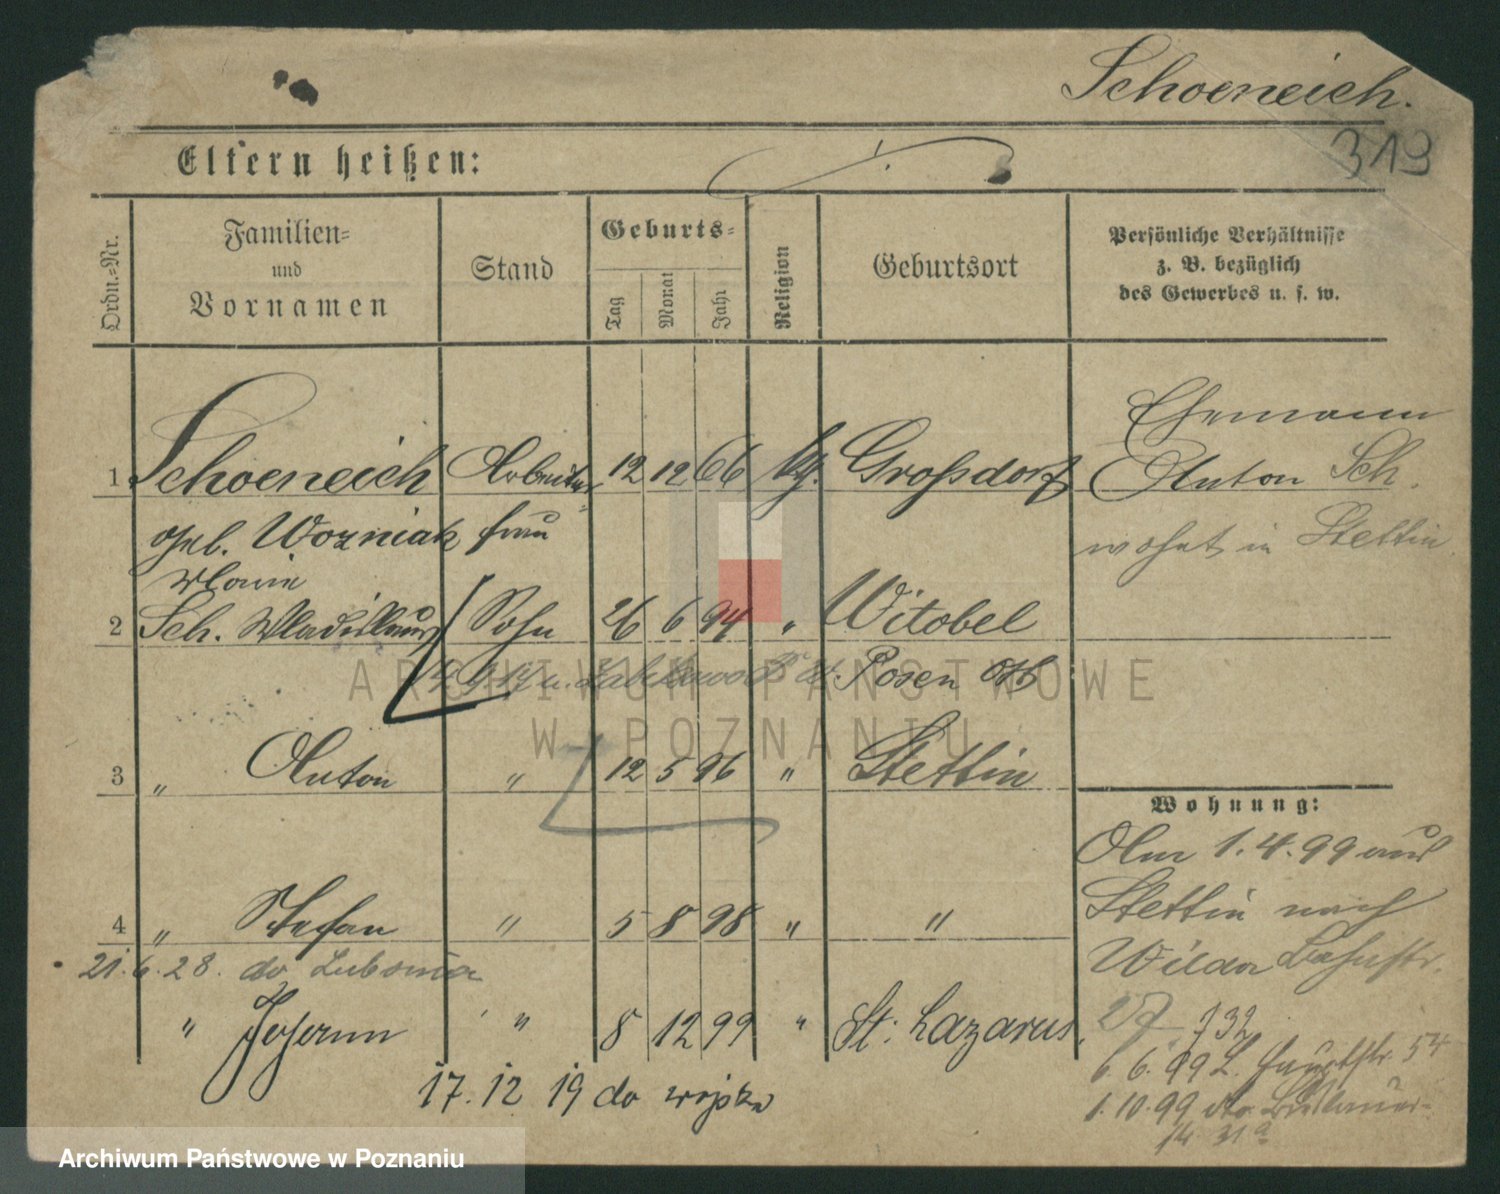 Schoeneich.
319
Eltern heißen:
Ordn.-Nr.
Familien-
und
Vornamen
Stand
Geburts-
Tag
Monat
Jahr
Religion
Geburtsort
Persönliche Verhältnisse
z. B. bezüglich
des Gewerbes u. s. w.
1 Schoeneich Arbeiter- 12 12 66 kg. Großdorf
geb. Wozniak frau
Marie
Ehemann
Anton Sch.
wohnt in Stettin
2 Sch. Wladislaus Sohn 26 6 94 " Witobel
Posen Ost
3 " Anton " 12 5 96 " Stettin
4 " Stefan " 5 8 98 " "
21.6.28. do
" Johann " 8 12 99 " St: Lazarus
17. 12 19 do wojska
Wohnung:
Am 1.4.99 aus
Stettin nach
Wilda Bahnstr.
27 732
6. 6. 99 L. Hauptstr. 54
1.10.99
14 31a
ARCHIWUM PAŃSTWOWE
W POZNANIU
Archiwum Państwowe w Poznaniu